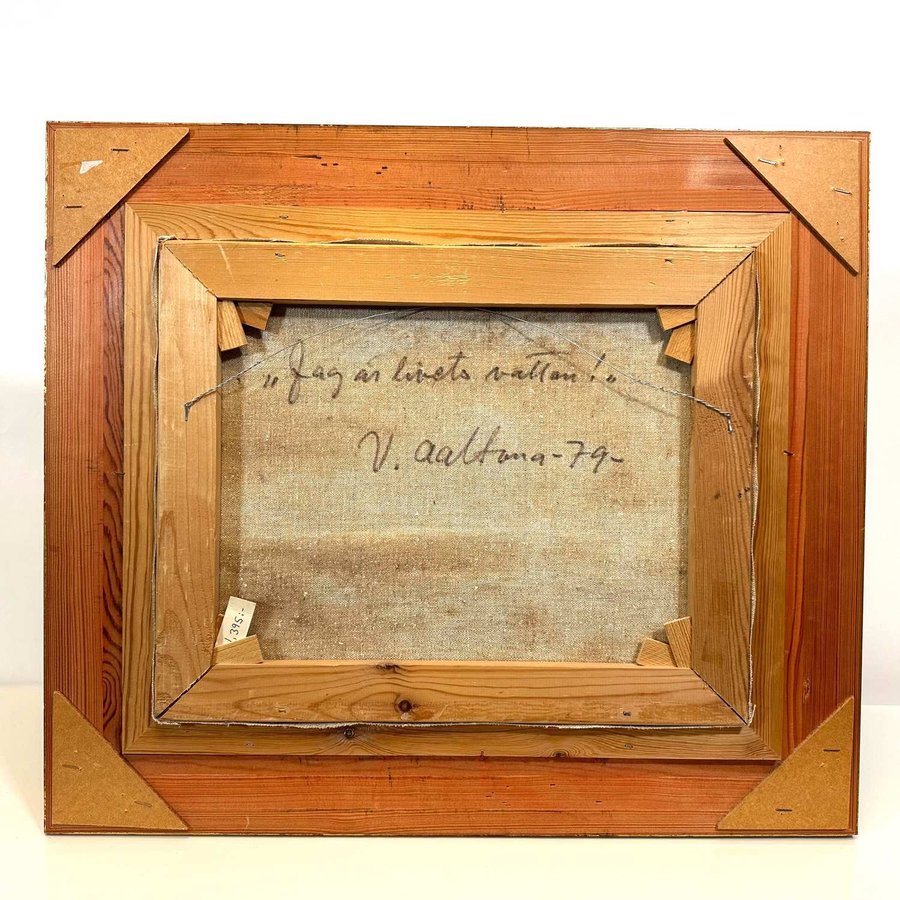 „Jag är livets vatten!„
V. Aaltona -79-
1,395:-